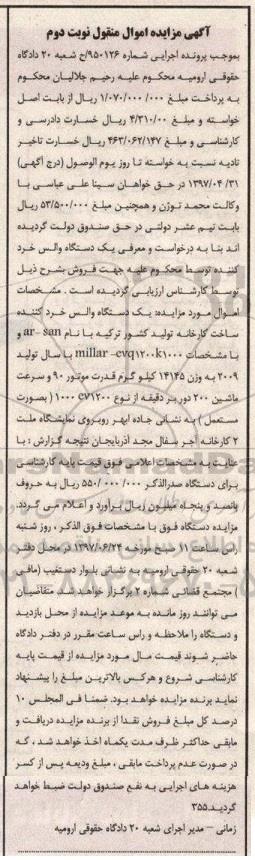 آگهی مزایده اموال منقول نوبت دوم
بموجب پرونده اجرایی شماره ۹۵۰۱۲۶/ح شعبه ۲۰ دادگاه
حقوقی ارومیه محکوم علیه رحیم جلالیان محکوم
به پرداخت مبلغ ۱/۰۷۰/۰۰۰/۰۰۰ ریال از بابت اصل
خواسته و مبلغ ۴/۳۱۰/۰۰ ریال خسارت دادرسی و
کارشناسی و مبلغ ۴۶۳/۰۶۲/۱۴۷ ریال خسارت تاخیر
تادیه نسبت به خواسته تا روز یوم الوصول (درج آگهی)
۱۳۹۷/۰۴/۳۱ در حق خواهان سینا علی عباسی با
وکالت محمد توزن و همچنین مبلغ ۵۳/۵۰۰/۰۰۰ ریال
بابت نیم عشر دولتی در حق صندوق دولت گردیده
اند بنا به درخواست و معرفی یک دستگاه والس خرد
کننده توسط محکوم علیه جهت فروش بشرح ذیل
توسط کارشناس ارزیابی گردیده است . مشخصات
اموال مورد مزایده: یک دستگاه والس خرد کننده
ساخت کارخانه تولید کشور ترکیه با نام ar-san و
با مشخصات millar -evq۱۲۰۰k۱۰۰۰ با سال تولید
۲۰۰۹ به وزن ۱۴۱۴۵ کیلو گرم قدرت موتور ۹۰ و سرعت
ماشین ۲۰۰ دور بر دقیقه از نوع ۱۰۰۰ c۷۱۲۰۰ ( بصورت
مستعمل ) به نشانی جاده ابهر روبروی نمایشگاه ملت
۲ کارخانه آجر سفال مجد آذربایجان نتیجه گزارش : با
عنایت به مشخصات اعلامی فوق قیمت پایه کارشناسی
برای دستگاه صدرالذکر ۵۵۰/۰۰۰/۰۰۰ ریال به حروف
پانصد و پنجاه میلیون ریال برآورد و اعلام می گردد.
مزایده دستگاه فوق با مشخصات فوق الذکر ، روز شنبه
راس ساعت ۱۱ صبح مورخه ۱۳۹۷/۰۶/۲۴ در محل دفتر
شعبه ۲۰ حقوقی ارومیه به نشانی بلوار دستغیب (مافی
) مجتمع قضائی شماره ۲ برگزار خواهد شد. متقاضیان
می توانند روز مانده به موعد مزایده از محل بازدید
و دستگاه را ملاحظه و راس ساعت مقرر در دفتر دادگاه
حاضر شوند قیمت مال مورد مزایده از قیمت پایه
کارشناسی شروع و هرکس بالاترین مبلغ را پیشنهاد
نماید برنده مزایده خواهد بود. ضمنا فی المجلس ۱۰
درصد کل مبلغ فروش نقدا از برنده مزایده دریافت و
مابقی حداکثر ظرف مدت یکماه اخذ خواهد شد ، که
در صورت عدم پرداخت مابقی ، مبلغ ودیعه پس از کسر
هزینه های اجرایی به نفع صندوق دولت ضبط خواهد
گردید.۳۵۵
زمانی – مدیر اجرای شعبه ۲۰ دادگاه حقوقی ارومیه